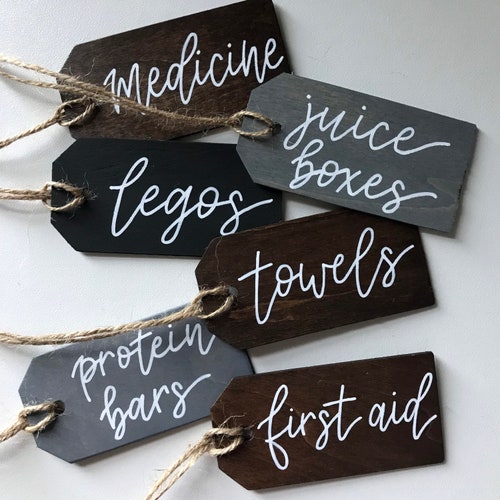 medicine
juice
boxes
legos
towels
protein
bars
first aid